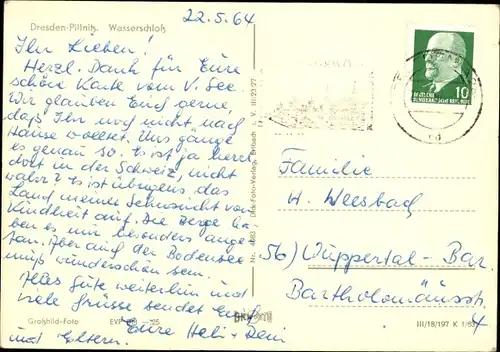 22.5.64
Dresden-Pillnitz. Wasserschloß
Ihr Lieben!
Herzl. Dank für Eure
schöne Karte vom V. See
Wir glauben Euch gerne,
daß Ihr noch nicht nach
Hause wolltet. Uns ginge
es genau so. Es ist ja herrl.
dort in der Schweiz, nicht
wahr? Es ist übrigens das
Land meiner Sehnsucht von
Kindheit auf. Die Berge ha-
ben es mir besonders ange-
tan. Aber auch der Bodensee
muß wunderschön sein.
Alles Gute weiterhin und
viele Grüsse sendet Euch
Eure Heli + Leni
und Eltern.
Großbild-Foto EVP 25
Familie
H. Weesbach
56) Wuppertal-Bar.
Bartholomäusstr.
4
III/18/197 K 1/63
10
DEUTSCHE
DEMOKRATISCHE REPUBLIK